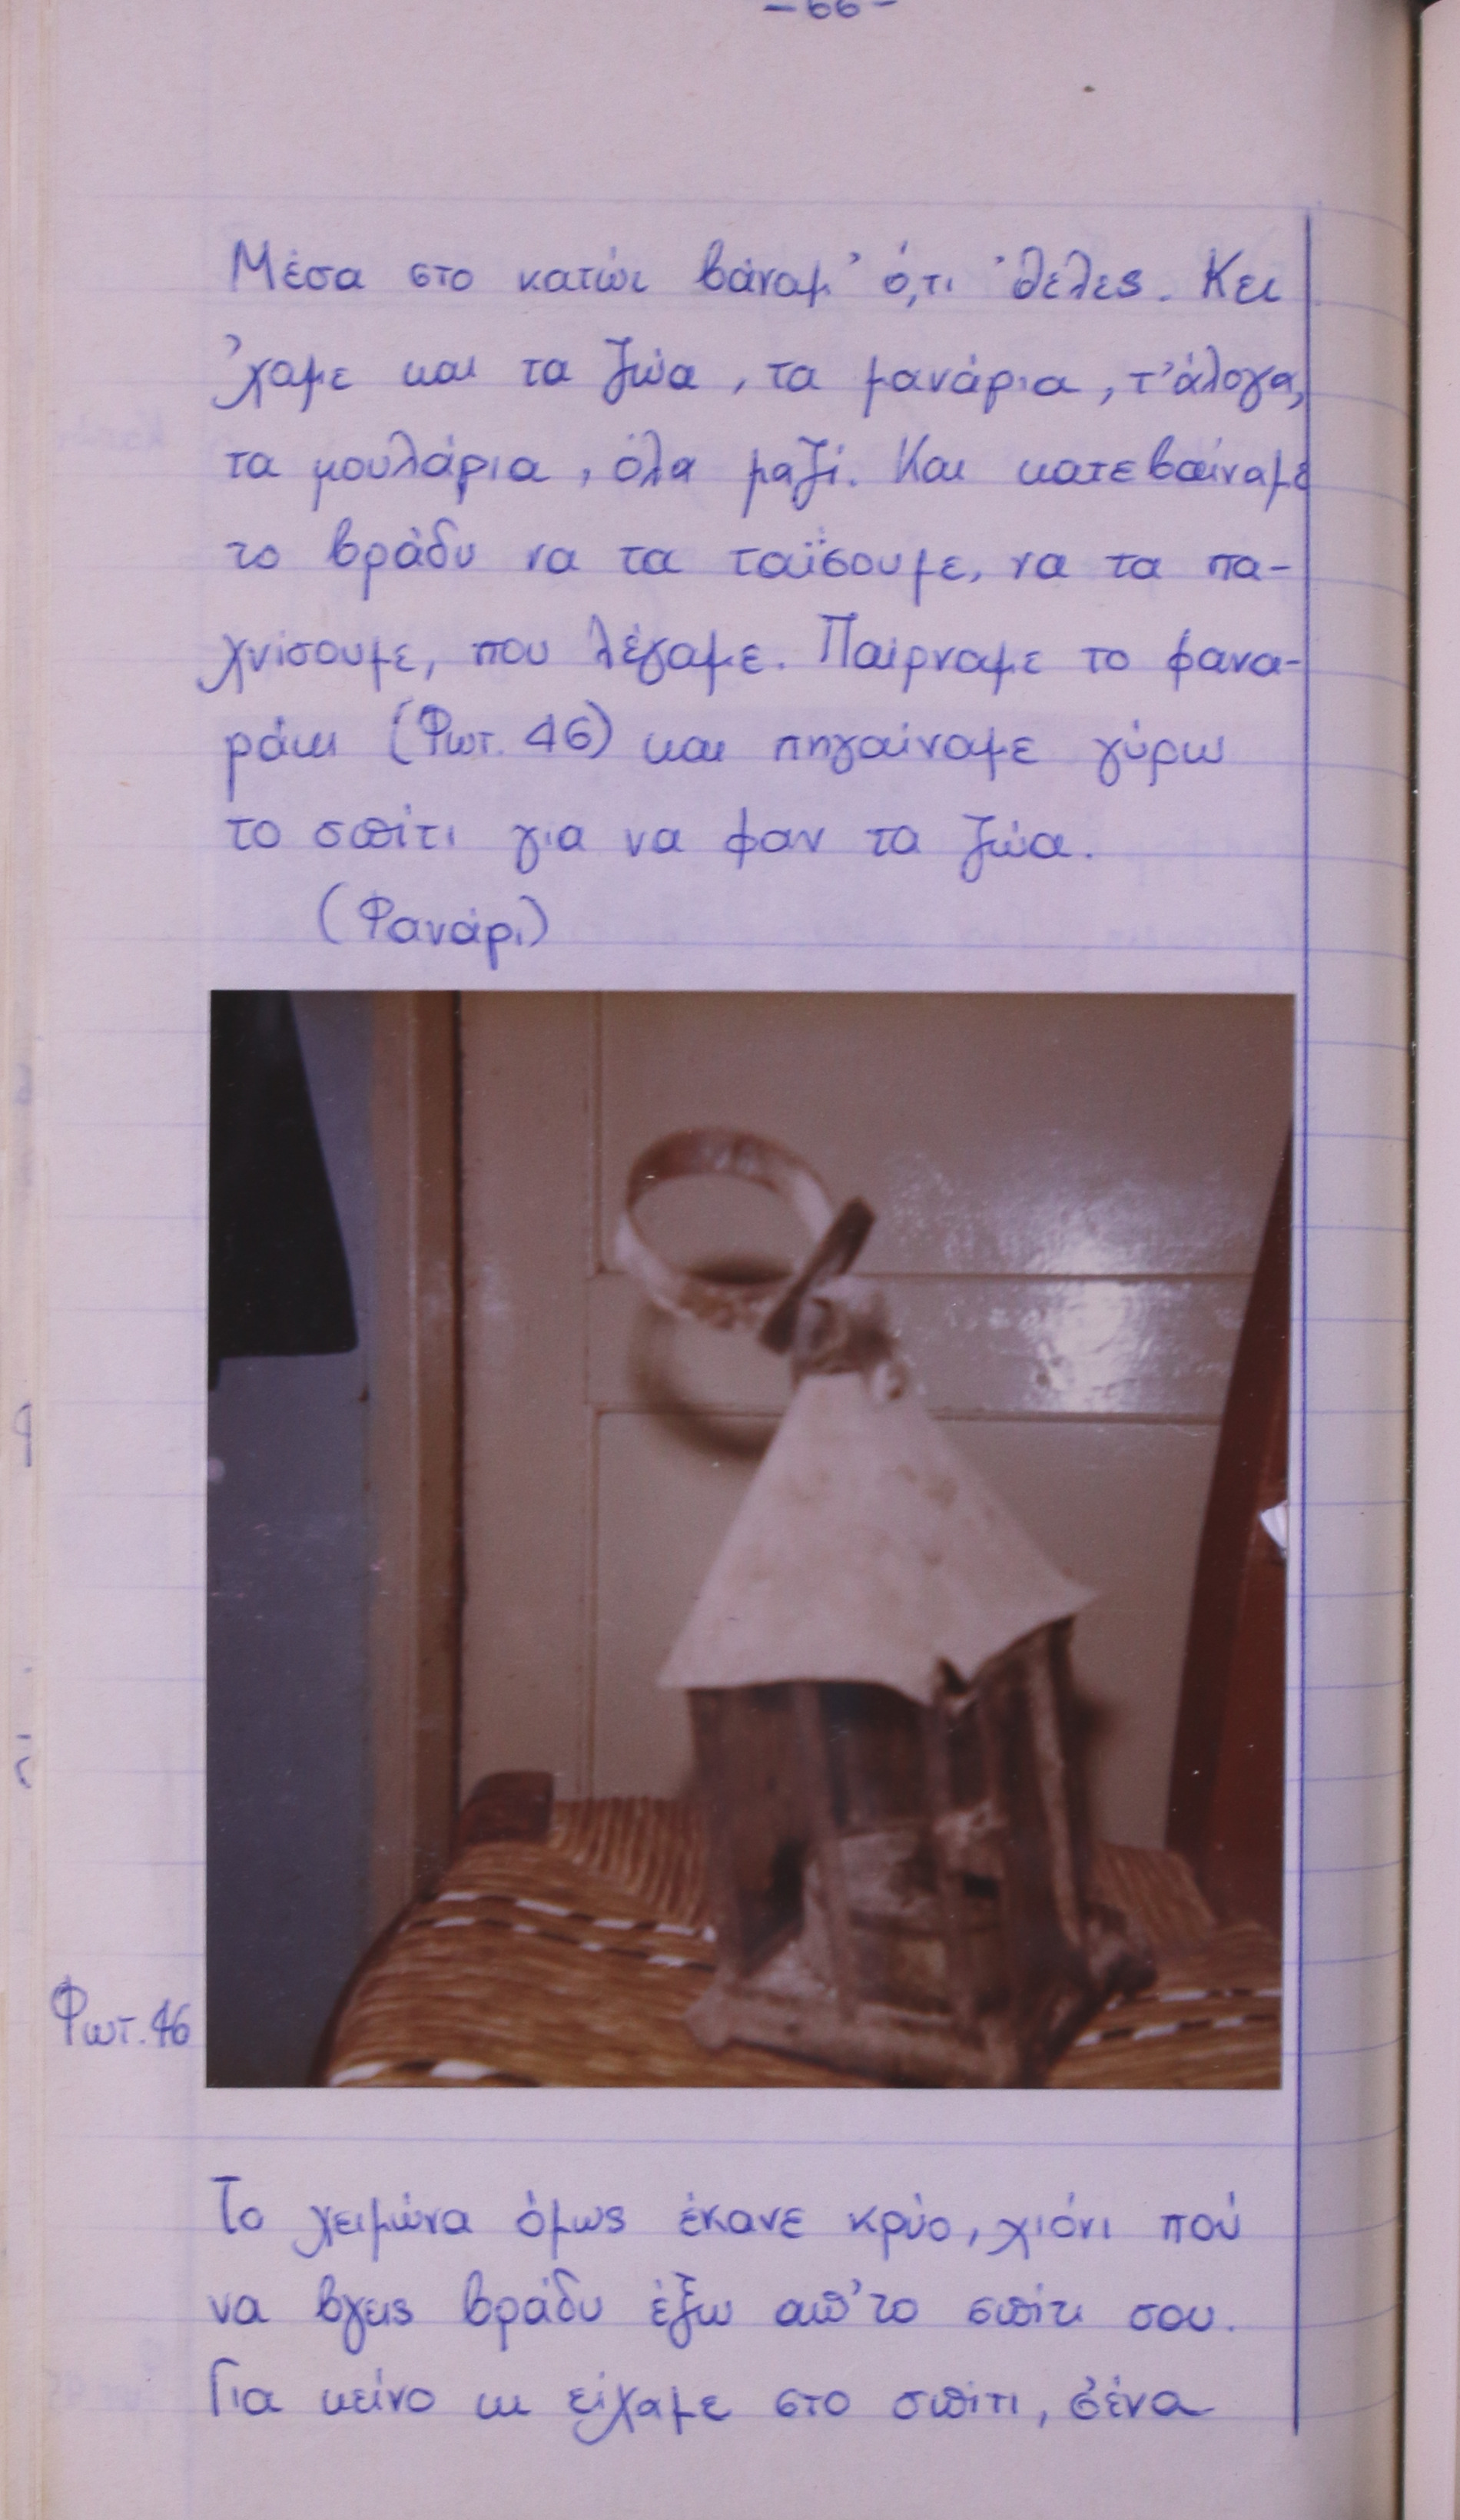 -66-
Μέσα στο κατώι βάναμ' ό,τι 'θελες. Κει
'χαμε και τα ζώα, τα μανάρια, τ'άλογα,
τα μουλάρια, όλα μαζί. Και κατεβαίναμε
το βράδυ να τα ταΐσουμε, να τα πα-
χνίσουμε, που λέγαμε. Παίρναμε το φανα-
ράκι (Φωτ. 46) και πηγαίναμε γύρω
το σπίτι για να φαν τα ζώα.
(Φανάρι)
Φωτ. 46
Το χειμώνα όμως έκανε κρύο, χιόνι πού
να βγεις βράδυ έξω απ'το σπίτι σου.
Για κείνο κι είχαμε στο σπίτι, σ'ένα